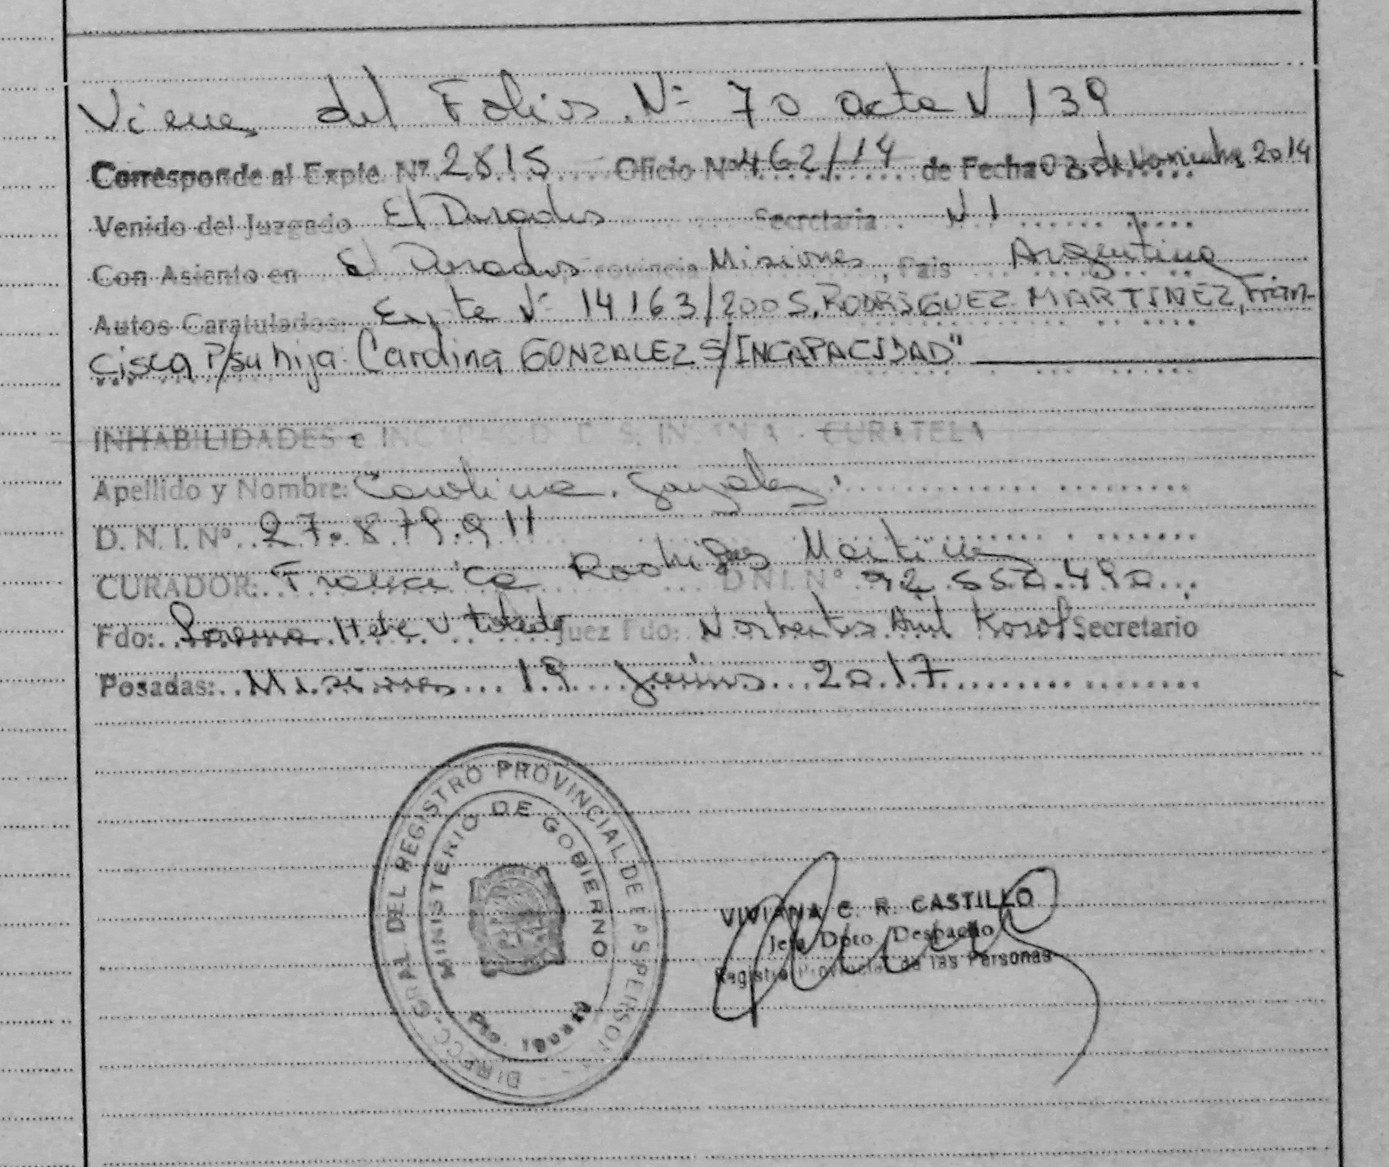 Viene del Folios Nº 70 acta N 139
Corresponde al Expte. Nº 2815 Oficio Nº 462/14 de Fecha 03 de Noviembre 2014
Venido del Juzgado El Dorado Secretaria N 1
Con Asiento en El Dorado Provincia Misiones, País Argentina
Autos Caratulados: Expte Nº 14163/2005. RODRIGUEZ MARTINEZ, Fran-
cisca P/su hija: Carolina GONZALEZ S/INCAPACIDAD"
INHABILIDADES e INCAPACIDADES, INSANIA - CURATELA
Apellido y Nombre: Carolina Gonzalez
D. N. I. Nº 27.879.911
CURADOR: Francisca Rodriguez Martinez D.N.I. Nº 92.550.490
Fdo: Juez Fdo: Norberto Secretario
Posadas: Misiones 19 Junio 2017
DIRECC. GRAL DEL REGISTRO PROVINCIAL DE LAS PERSONAS
MINISTERIO DE GOBIERNO
Pto. Iguazú
VIVIANA C. R. CASTILLO
Jefa Dpto Despacho
Registro Provincial de las Personas